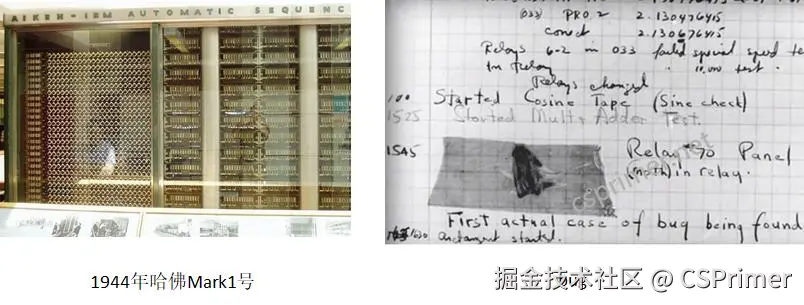 AIKEN-IBM AUTOMATIC SEQUENC
(033) PRO 2 2.130476415
correct 2.130676415
Relays 6-2 in 033 failed special speed te
In Relay 10,000 test.
Relays changed
Started Cosine Tape (Sine check)
1525 Started Mult+Adder Test.
1545 Relay 70 Panel
(moth) in relay.
First actual case of bug being found
started.
csprimer.net
1944年哈佛Mark1号
掘金技术社区 @ CSPrimer